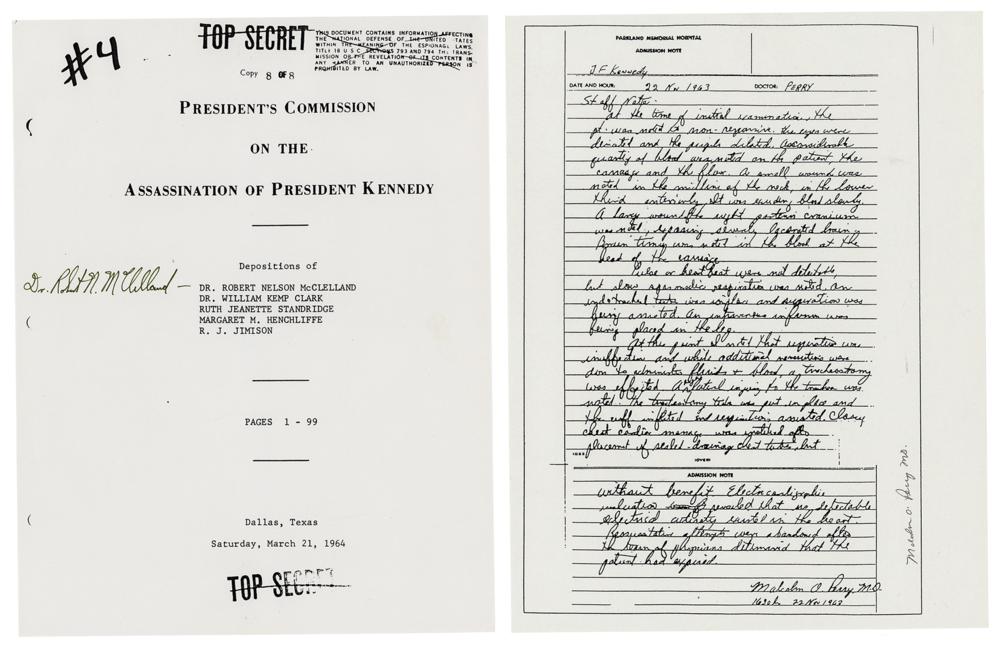 #4
TOP SECRET
THIS DOCUMENT CONTAINS INFORMATION AFFECTING
THE NATIONAL DEFENSE OF THE UNITED STATES
WITHIN THE MEANING OF THE ESPIONAGE LAWS,
TITLE 18 U S C SECTIONS 793 AND 794 THE TRANS-
MISSION OR THE REVELATION OF ITS CONTENTS IN
ANY MANNER TO AN UNAUTHORIZED PERSON IS
PROHIBITED BY LAW.
Copy 8 OF 8
PRESIDENT'S COMMISSION
ON THE
ASSASSINATION OF PRESIDENT KENNEDY
Depositions of
Dr. Robt N. McClelland —
DR. ROBERT NELSON McCLELLAND
DR. WILLIAM KEMP CLARK
RUTH JEANETTE STANDRIDGE
MARGARET M. HENCHLIFFE
R. J. JIMISON
PAGES 1 - 99
Dallas, Texas
Saturday, March 21, 1964
TOP SECRET
PARKLAND MEMORIAL HOSPITAL
ADMISSION NOTE
J F Kennedy
DATE AND HOUR: 22 Nov 1963 DOCTOR: PERRY
Staff Note:
At the time of initial examination, the
pt. was noted to non-responsive. The eyes were
deviated and the pupils dilated. A considerable
quantity of blood was noted on the patient, the
carriage and the floor. A small wound was
noted in the midline of the neck, in the lower
third anteriorly. It was exuding blood slowly.
A large wound of the right posterior cranium
was noted, exposing severely lacerated brain.
Brain tissue was noted in the blood at the
head of the carriage.
Pulse or heartbeat were not detectable,
but slow spasmodic respiration was noted. An
endotracheal tube was in place and respiration was
being assisted. An intravenous infusion was
being placed in the leg.
At this point I noted that respiration was
ineffective and while additional venisections were
done to administer fluids + blood, a tracheostomy
was effected. A right lateral injury to the trachea was
noted. The tracheostomy tube was put in place and
the cuff inflated and respiration assisted. Closed
chest cardiac massage was instituted after
placement of sealed drainage chest tubes, but
ADMISSION NOTE
without benefit. Electrocardiographic
evaluation revealed that no detectable
electrical activity existed in the heart.
Resuscitation attempts were abandoned after
the team of physicians determined that the
patient had expired.
Malcolm O. Perry, M.D.
1630 hr 22 Nov 1963
Malcolm O. Perry M.D.